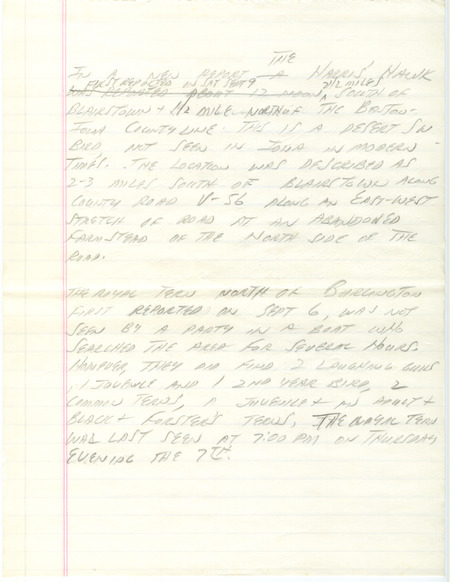 THE
IN A NEW REPORT A HARRIS' HAWK
FIRST REPORTED ON SAT SEPT 9 2 1/2 MILES
WAS REPORTED ABOUT 12 NOON, SOUTH OF
BLAIRSTOWN + 1/2 MILE NORTH OF THE BENTON-
IOWA COUNTY LINE. THIS IS A DESERT SW
BIRD NOT SEEN IN IOWA IN MODERN
TIMES. THE LOCATION WAS DESCRIBED AS
2-3 MILES SOUTH OF BLAIRSTOWN ALONG
COUNTY ROAD V-56 ALONG AN EAST-WEST
STRETCH OF ROAD AT AN ABANDONED
FARMSTEAD OF THE NORTH SIDE OF THE
ROAD.
THE ROYAL TERN NORTH OF BURLINGTON
FIRST REPORTED ON SEPT 6, WAS NOT
SEEN BY A PARTY IN A BOAT WHO
SEARCHED THE AREA FOR SEVERAL HOURS.
HOWEVER, THEY DID FIND 2 LAUGHING GULLS
, 1 JUVENILE AND 1 2ND YEAR BIRD, 2
COMMON TERNS, A JUVENILE + AN ADULT +
BLACK + FORSTER'S TERNS. THE ROYAL TERN
WAS LAST SEEN AT 7:00 PM ON THURSDAY
EVENING THE 7TH.